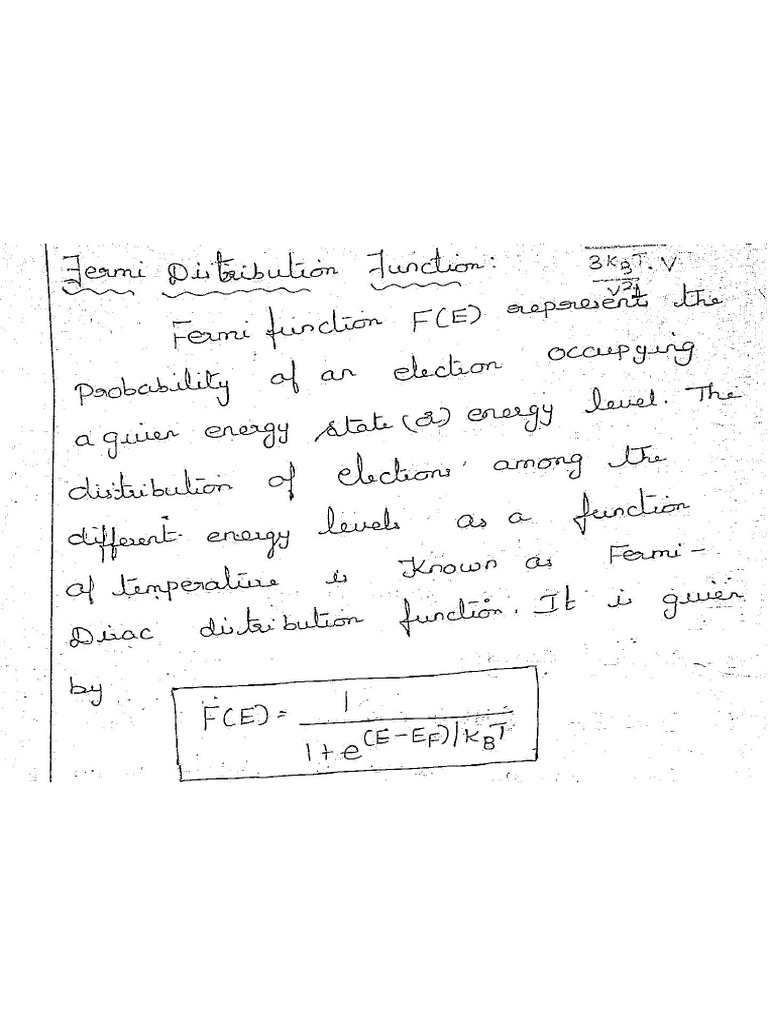 Fermi Distribution Function:
3KBT.V
V²λ
Fermi function F(E) represents the
Probability of an election occupying
a given energy state (or) energy level. The
distribution of elections among the
different energy levels as a function
of temperature is Known as Fermi-
Dirac distribution function. It is given
by
F(E) = 1 / 1 + e^(E-EF)/KBT